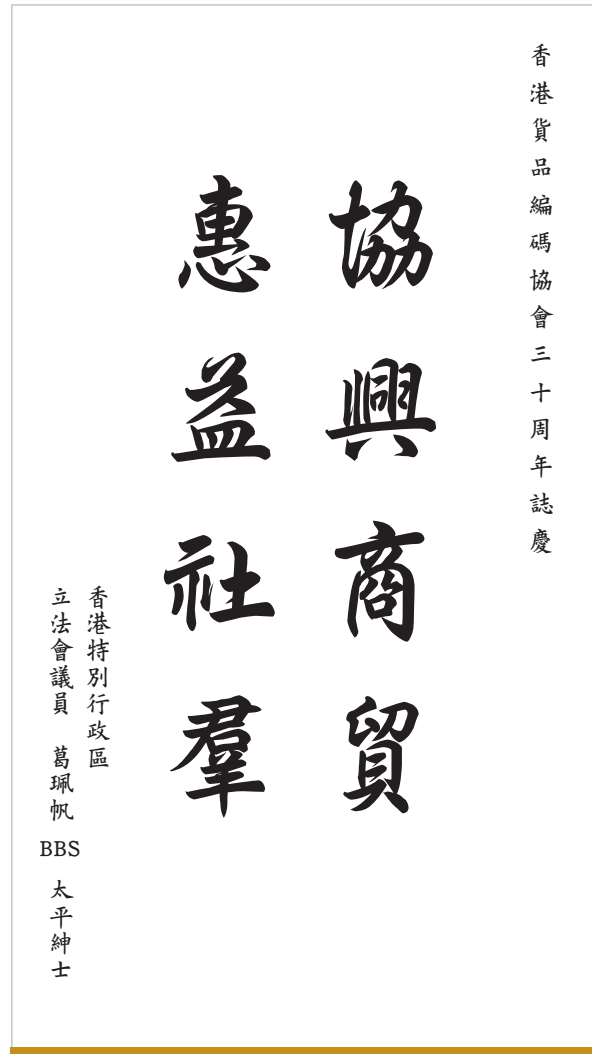 香港貨品編碼協會三十周年誌慶
協興商貿
惠益社羣
香港特別行政區
立法會議員 葛珮帆 BBS 太平紳士